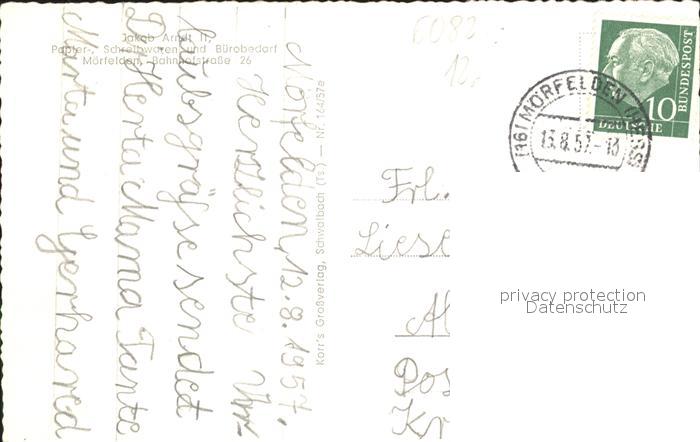 Jakob Arndt II,
Papier-, Schreibwaren und Bürobedarf
Mörfelden, Bahnhofstraße 26
Mörfelden, 12.8.1957.
Herzlichste Ur-
laubsgräfse sendet
Dir Herta Mama Tante
Marta und Gerhared
Korr's Großverlag, Schwalbach (Ts.) — Nr. 164/57e
6082
12.
(16) MÖRFELDEN (HESS)
13.8.57.-18
10
DEUTSCHE
BUNDESPOST
Frl.
Liese
Al
Pos
Kr
privacy protection
Datenschutz